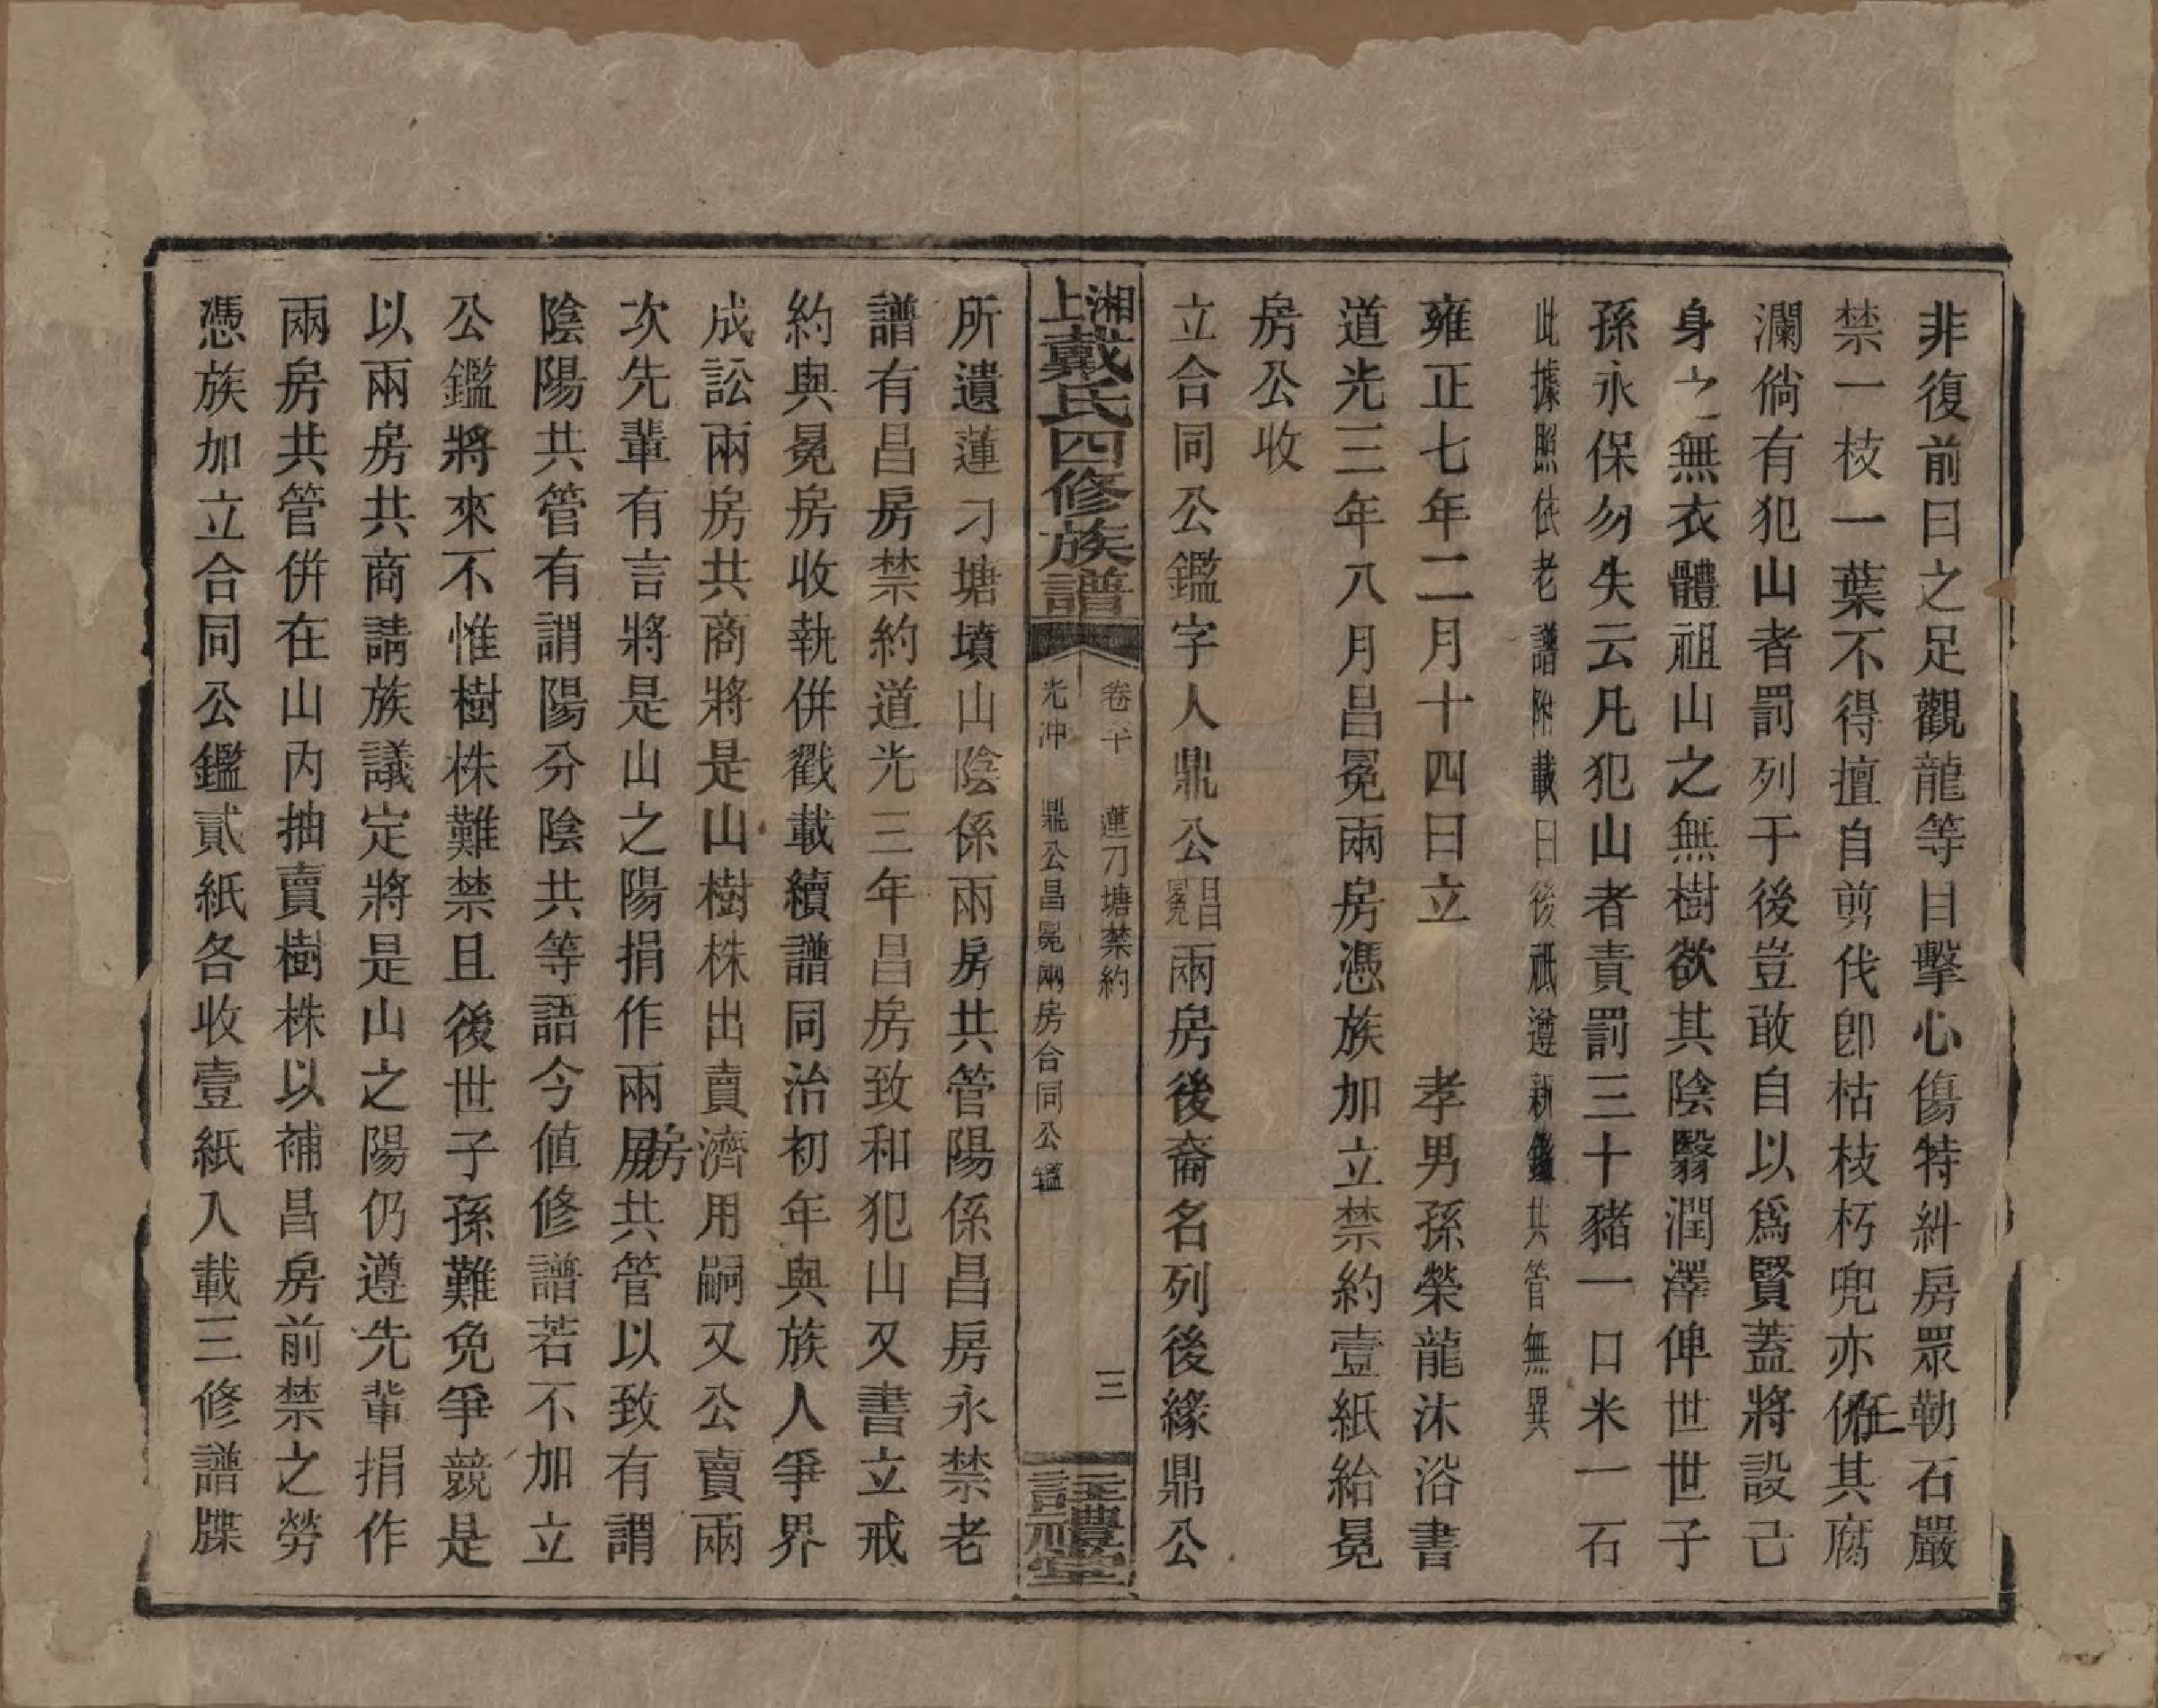 非復前日之足觀龍等目擊心傷特糾房眾勒石嚴
禁一枝一葉不得擅自剪伐卽枯枝朽兜亦任其腐
瀾倘有犯山者罰列于後豈敢自以爲賢蓋將設己
身之無衣體祖山之無樹欲其陰翳潤澤俾世世子
孫永保勿失云凡犯山者責罰三十豬一口米一石
此據照依老譜附載日後祇遵新鑑共管無異
雍正七年二月十四日立　孝男孫榮龍沐浴書
道光三年八月昌冕兩房憑族加立禁約壹紙給冕
房公收
立合同公鑑字人鼎公昌冕兩房後裔名列後緣鼎公
湘上戴氏四修族譜
卷　蓮刁塘禁約　三
光冲　鼎公昌冕兩房合同公鑑
註禮堂
所遺蓮刁塘墳山陰係兩房共管陽係昌房永禁老
譜有昌房禁約道光三年昌房致和犯山又書立戒
約與冕房收執併戳載續譜同治初年與族人爭界
成訟兩房共商將是山樹株出賣濟用嗣又公賣兩
次先輩有言將是山之陽捐作兩房共管以致有謂
陰陽共管有謂陽分陰共等語今值修譜若不加立
公鑑將來不惟樹株難禁且後世子孫難免爭競是
以兩房共商請族議定將是山之陽仍遵先輩捐作
兩房共管併在山內抽賣樹株以補昌房前禁之勞
憑族加立合同公鑑貳紙各收壹紙入載三修譜牒